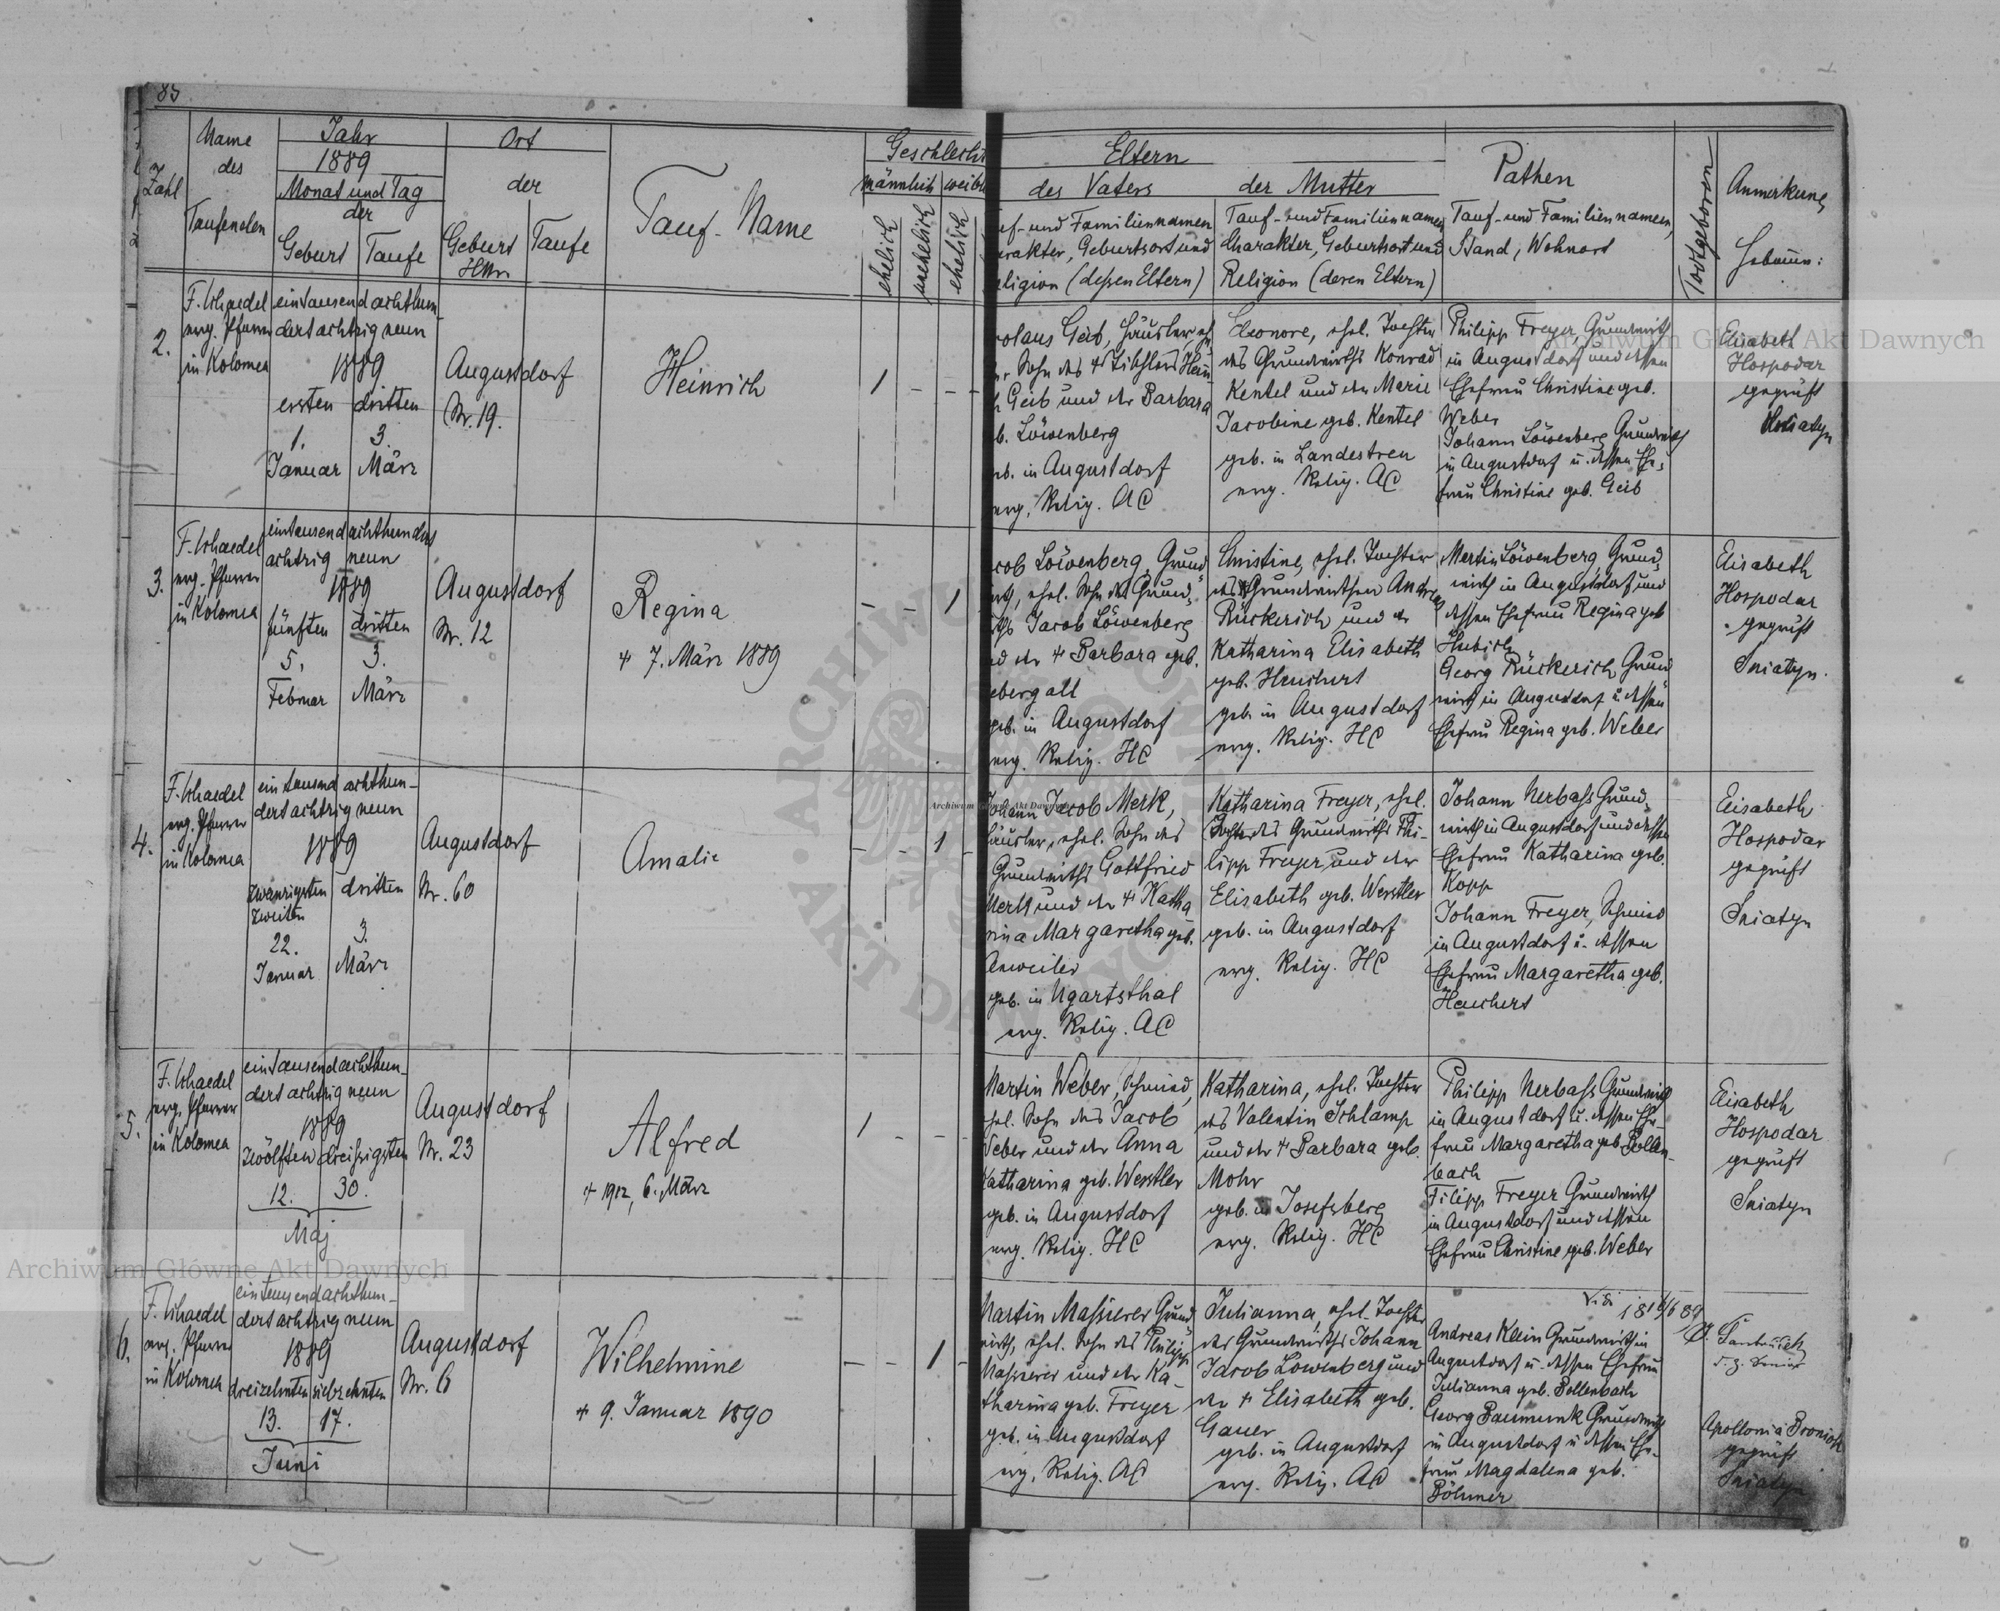 85
Zahl
Name
des
Taufenden
Jahr
1889
Monat und Tag
der
Geburt
Taufe
Ort
der
Geburt
HNr.
Taufe
Tauf-Name
Geschlecht
männlich
weibl
ehelich
unehelich
ehelich
Eltern
des Vaters
uf- und Familiennamen
arakter, Geburtsort und
eligion (deßen Eltern)
der Mutter
Tauf- und Familiennamen
Charakter, Geburtsort und
Religion (deren Eltern)
Pathen
Tauf- und Familiennamen,
Stand, Wohnort
Todtgeboren
Anmerkung
Hebamm:
2.
F. Schaedel
evg. Pfarrer
in Kolomea
eintausend achthun-
dertachtzig neun
1889
ersten dritten
1. 3.
Januar März
Augustdorf
Nr. 19.
Heinrich
1 - - -
olaus Geib, Häusler, eh
r Sohn des + Tischlers Hein
h Geib und der Barbara
b. Löwenberg
eb. in Augustdorf
evg. Relig. AC
Eleonore, ehel. Tochter
des Grundwirths Konrad
Kentel und der Marie
Jacobine geb. Kentel
geb. in Landestreu
evg. Relig. AC
Philipp Freyer, Grundwirth
in Augustdorf und dessen
Ehefrau Christine geb.
Weber
Johann Löwenberg Grundwirth
in Augustdorf u. dessen Ehe-
frau Christine geb. Geib
Elisabeth
Hospodar
geprüft
Sniatyn
3.
F. Schaedel
evg. Pfarrer
in Kolomea
eintausend achthundert
achtzig neun
1889
fünften dritten
5. 3.
Februar März
Augustdorf
Nr. 12
Regina
+ 7. März 1889
- - 1 -
cob Löwenberg, Grund
irth, ehel. Sohn des Grund-
rths Jacob Löwenberg
nd der + Barbara geb.
ebergall
geb. in Augustdorf
evg. Relig. HC
Christine, ehel. Tochter
des Grundwirthen Andreas
Rückerich und der
Katharina Elisabeth
geb. Heuchert
geb. in Augustdorf
evg. Relig. HC
Martin Löwenberg, Grund-
wirth in Augustdorf und
dessen Ehefrau Regina geb
Hubich
Georg Rückerich Grund
wirth in Augustdorf u. dessen
Ehefrau Regina geb. Weber
Elisabeth
Hospodar
geprüft
Sniatyn.
4.
F. Schaedel
evg. Pfarrer
in Kolomea
eintausend achthun-
dertachtzig neun
1889
zwanzigsten dritten
zweiten
22. 3.
Januar März
Augustdorf
Nr. 60
Amalie
- - 1 -
Johann Jacob Merk,
Häusler, ehel. Sohn des
Grundwirths Gottfried
Merk und der + Katha
rina Margaretha geb.
Anweiler
geb. in Ugartsthal
evg. Relig. AC
Katharina Freyer, ehel.
Tochter des Grundwirths Phi-
lipp Freyer und der
Elisabeth geb. Westler
geb. in Augustdorf
evg. Relig. HC
Johann Nerbaß Grund-
wirth in Augustdorf und dessen
Ehefrau Katharina geb.
Kopp
Johann Freyer, Schmied
in Augustdorf u. dessen
Ehefrau Margaretha geb.
Heuchert
Elisabeth
Hospodar
geprüft
Sniatyn
5.
F. Schaedel
evg. Pfarrer
in Kolomea
eintausend achthun-
dertachtzig neun
1889
zwölften dreißigsten
12. 30.
Maj
Augustdorf
Nr. 23
Alfred
+ 1912, 6. März
1 - - -
Martin Weber, Schmied,
ehel. Sohn des Jacob
Weber und der Anna
Katharina geb. Westler
geb. in Augustdorf
evg. Relig. HC
Katharina, ehel. Tochter
des Valentin Schlamp
und der + Barbara geb.
Mohr
geb. in Josefsberg
evg. Relig. HC
Philipp Nerbaß Grundwirth
in Augustdorf u. dessen Ehe-
frau Margaretha geb. Bollen-
bach
Filipp Freyer Grundwirth
in Augustdorf und dessen
Ehefrau Christine geb. Weber
Elisabeth
Hospodar
geprüft
Sniatyn
6.
F. Schaedel
evg. Pfarrer
in Kolomea
eintausend achthun-
dertachtzig neun
1889
dreizehnten siebzehnten
13. 17.
Juni
Augustdorf
Nr. 6
Wilhelmine
+ 9. Januar 1890
- - 1 -
Martin Maßierer Grund
wirth, ehel. Sohn des Philipp
Maßierer und der Ka-
tharina geb. Freyer
geb. in Augustdorf
evg. Relig. AC
Julianna, ehel. Tochter
des Grundwirths Johann
Jacob Löwenberg und
der + Elisabeth geb.
Gauer
geb. in Augustdorf
evg. Relig. AC
Vidi
Andreas Klein Grundwirth in
Augustdorf u. dessen Ehefrau
Julianna geb. Bollenbach
Georg Baumunk Grundwirth
in Augustdorf u dessen Ehe-
frau Magdalena geb.
Böhmer
Apollonia
geprüft
Sniatyn
Archiwum Główne Akt Dawnych
Archiwum Główne Akt Dawnych
Archiwum Główne Akt Dawnych